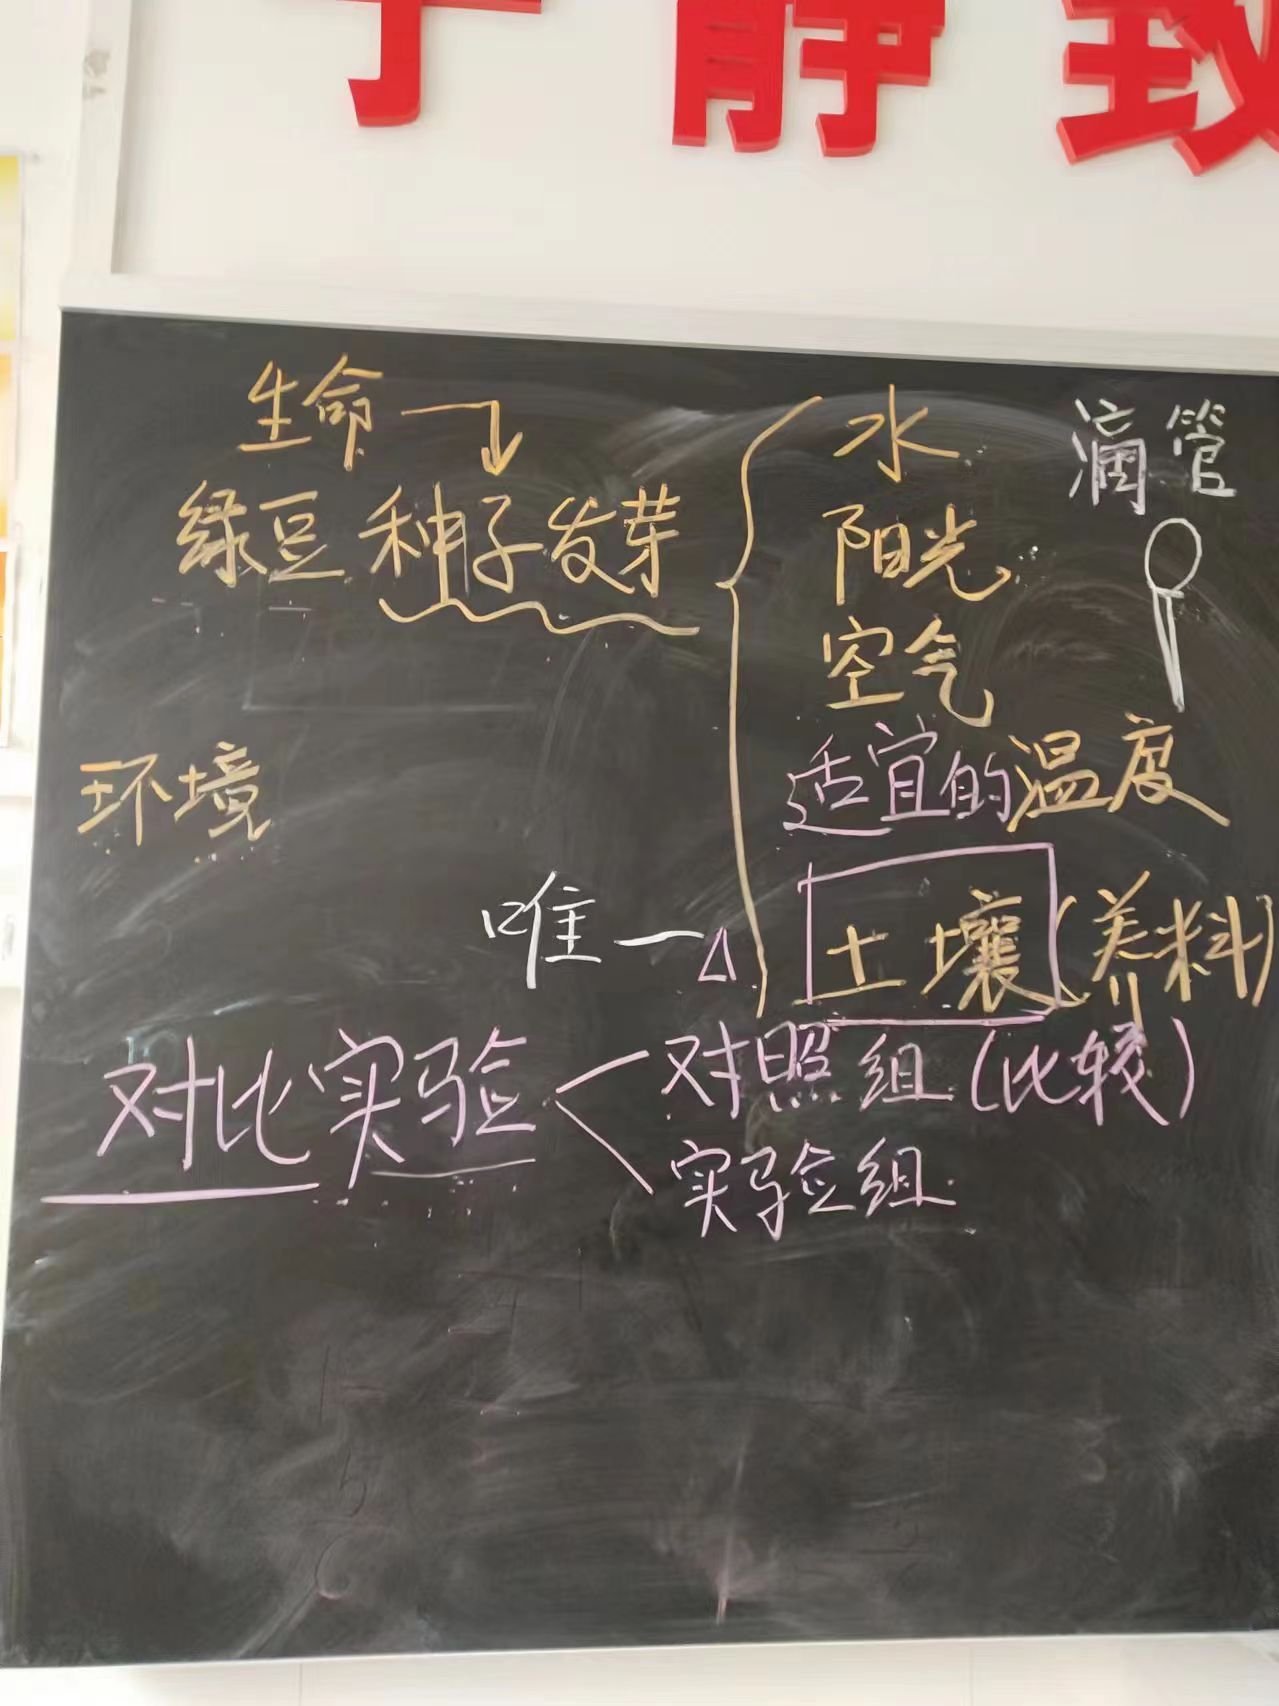 宁静致
生命
绿豆种子发芽
水
滴管
阳光
空气
适宜的温度
环境
唯一 土壤(养料)
对比实验
对照组(比较)
实验组